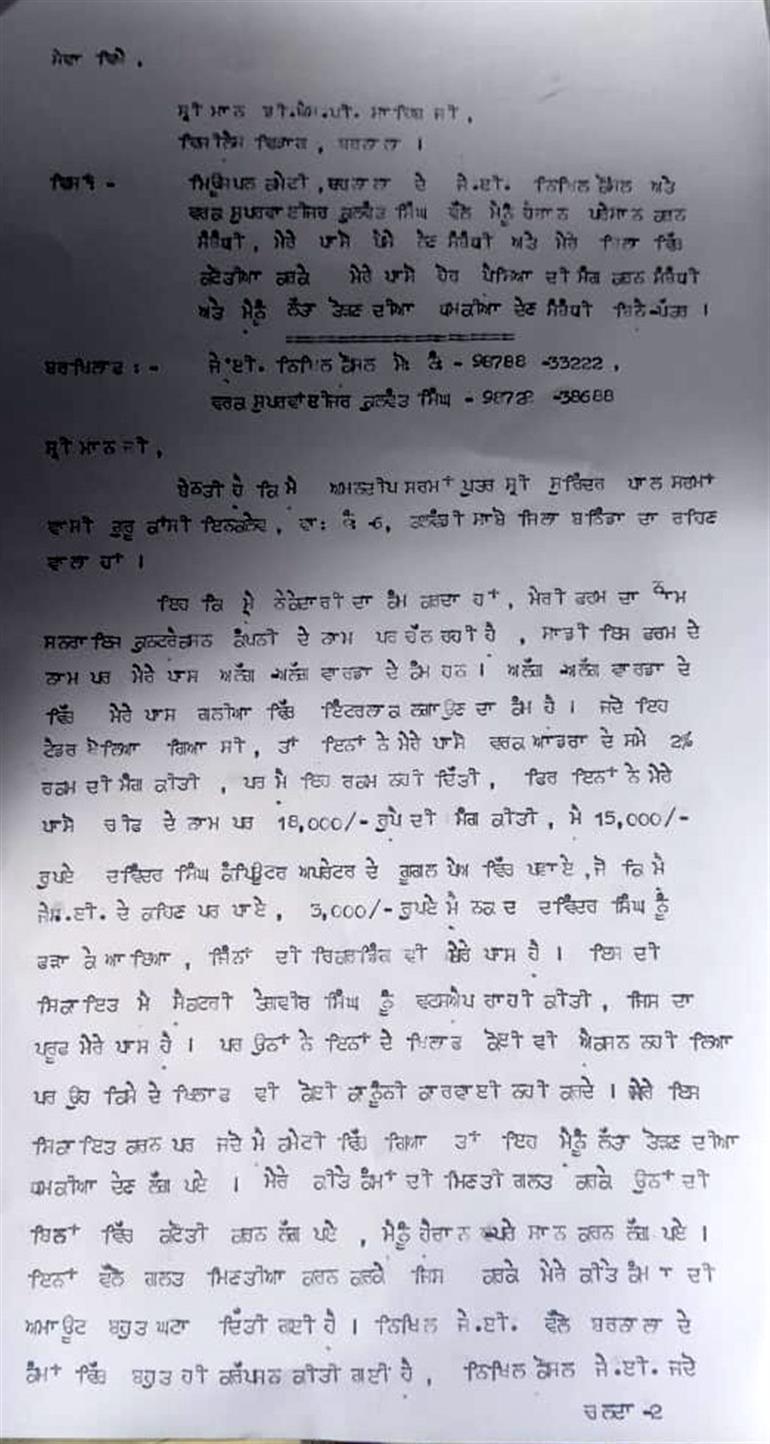 ਸੇਵਾ ਵਿਖੇ,
ਸ੍ਰੀਮਾਨ ਡੀ.ਐਸ.ਪੀ. ਸਾਹਿਬ ਜੀ,
ਵਿਜੀਲੈਂਸ ਵਿਭਾਗ, ਬਰਨਾਲਾ ।
ਵਿਸ਼ਾ - ਮਿਊਂਸਪਲ ਕਮੇਟੀ, ਬਰਨਾਲਾ ਦੇ ਜੇ.ਈ. ਨਿਖਿਲ ਕੌਸਲ ਅਤੇ
ਵਰਕ ਸੁਪਰਵਾਈਜਰ ਕੁਲਵੰਤ ਸਿੰਘ ਵੱਲੋ ਮੈਨੂੰ ਹੈਰਾਨ ਪਰੇਸਾਨ ਕਰਨ
ਸੰਬੰਧੀ, ਮੇਰੇ ਪਾਸੋ ਪੈਸੇ ਲੈਣ ਸੰਬੰਧੀ ਅਤੇ ਮੇਰੇ ਬਿਲਾ ਵਿੱਚ
ਕਟੋਤੀਆ ਕਰਕੇ ਮੇਰੇ ਪਾਸੋ ਹੋਰ ਪੈਸਿਆ ਦੀ ਮੰਗ ਕਰਨ ਸੰਬੰਧੀ
ਅਤੇ ਮੈਨੂੰ ਲੱਤਾ ਤੋੜਣ ਦੀਆ ਧਮਕੀਆ ਦੇਣ ਸੰਬੰਧੀ ਬਿਨੈ-ਪੱਤਰ ।
ਬਰਖਿਲਾਫ :- ਜੇ.ਈ. ਨਿਖਿਲ ਕੌਸਲ ਮੋ: ਨੰ - 98788 -33222,
ਵਰਕ ਸੁਪਰਵਾਂਈਜਰ ਕੁਲਵੰਤ ਸਿੰਘ - -38688
ਸ੍ਰੀਮਾਨ ਜੀ,
ਬੇਨਤੀ ਹੈ ਕਿ ਮੈ ਅਮਨਦੀਪ ਸਰਮਾਂ ਪੁਤਰ ਸ੍ਰੀ ਸੁਰਿੰਦਰ ਪਾਲ ਸਰਮਾਂ
ਵਾਸੀ ਗੁਰੂ ਕਾਂਸੀ ਇਨਕਲੇਵ, ਵਾ: ਨੰ -6, ਤਲਵੰਡੀ ਸਾਬੋ ਜਿਲਾ ਬਠਿੰਡਾ ਦਾ ਰਹਿਣ
ਵਾਲਾ ਹਾਂ ।
ਇਹ ਕਿ ਮੈ ਠੇਕੇਦਾਰੀ ਦਾ ਕੰਮ ਕਰਦਾ ਹਾਂ, ਮੇਰੀ ਫਰਮ ਦਾ ਨਾਮ
ਸਨਰਾਇਜ ਕੁਨਟਰੈਕਸਨ ਕੰਪਨੀ ਦੇ ਨਾਮ ਪਰ ਚੱਲ ਰਹੀ ਹੈ, ਸਾਡੀ ਇਸ ਫਰਮ ਦੇ
ਨਾਮ ਪਰ ਮੇਰੇ ਪਾਸ ਅਲੱਗ -ਅਲੱਗ ਵਾਰਡਾ ਦੇ ਕੰਮ ਹਨ । ਅਲੱਗ -ਅਲੱਗ ਵਾਰਡਾ ਦੇ
ਵਿੱਚ ਮੇਰੇ ਪਾਸ ਗਲੀਆ ਵਿੱਚ ਇੰਟਰਲਾਕ ਲਗਾਉਣ ਦਾ ਕੰਮ ਹੈ । ਜਦੋ ਇਹ
ਟੈਡਰ ਖੋਲਿਆ ਗਿਆ ਸੀ, ਤਾਂ ਇਨਾਂ ਨੇ ਮੇਰੇ ਪਾਸੋ ਵਰਕ ਆਂਡਰਾ ਦੇ ਸਮੇ 2%
ਰਕਮ ਦੀ ਮੰਗ ਕੀਤੀ, ਪਰ ਮੈ ਇਹ ਰਕਮ ਨਹੀ ਦਿੱਤੀ, ਫਿਰ ਇਨਾਂ ਨੇ ਮੇਰੇ
ਪਾਸੋ ਚੀਫ ਦੇ ਨਾਮ ਪਰ 18,000/- ਰੁਪੈ ਦੀ ਮੰਗ ਕੀਤੀ, ਮੈ 15,000/-
ਰੁਪਏ ਦਵਿੰਦਰ ਸਿੰਘ ਕੰਪਿਊਟਰ ਅਪਰੇਟਰ ਦੇ ਗੂਗਲ ਪੇਅ ਵਿੱਚ ਪਵਾਏ, ਜੋ ਕਿ ਮੈ
ਜੇ.ਈ. ਦੇ ਕਹਿਣ ਪਰ ਪਾਏ, 3,000/- ਰੁਪਏ ਮੈ ਨਕਦ ਦਵਿੰਦਰ ਸਿੰਘ ਨੂੰ
ਫੜਾ ਕੇ ਆਇਆ, ਜਿੰਨਾਂ ਦੀ ਰਿਕਾਰਡਿੰਗ ਵੀ ਮੇਰੇ ਪਾਸ ਹੈ । ਇਸ ਦੀ
ਸਿਕਾਇਤ ਮੈ ਸੈਕਟਰੀ ਤੇਗਵੀਰ ਸਿੰਘ ਨੂੰ ਵਟਸਐਪ ਰਾਹੀ ਕੀਤੀ, ਜਿਸ ਦਾ
ਪਰੂਫ ਮੇਰੇ ਪਾਸ ਹੈ । ਪਰ ਉਨਾਂ ਨੇ ਇਨਾਂ ਦੇ ਖਿਲਾਫ ਕੋਈ ਵੀ ਐਕਸਨ ਨਹੀ ਲਿਆ
ਪਰ ਉਹ ਕਿਸੇ ਦੇ ਖਿਲਾਫ ਵੀ ਕੋਈ ਕਾਨੂੰਨੀ ਕਾਰਵਾਈ ਨਹੀ ਕਰਦੇ । ਮੇਰੇ ਇਸ
ਸਿਕਾਇਤ ਕਰਨ ਪਰ ਜਦੋ ਮੈ ਕਮੇਟੀ ਵਿੱਚ ਗਿਆ ਤਾਂ ਇਹ ਮੈਨੂੰ ਲੱਤਾ ਤੋੜਣ ਦੀਆ
ਧਮਕੀਆ ਦੇਣ ਲੱਗ ਪਏ । ਮੇਰੇ ਕੀਤੇ ਕੰਮਾਂ ਦੀ ਮਿਣਤੀ ਗਲਤ ਕਰਕੇ ਉਨਾਂ ਦੀ
ਬਿਲਾਂ ਵਿੱਚ ਕਟੋਤੀ ਕਰਨ ਲੱਗ ਪਏ, ਮੈਨੂੰ ਹੈਰਾਨ -ਪਰੇਸਾਨ ਕਰਨ ਲੱਗ ਪਏ ।
ਇਨਾਂ ਵੱਲੋ ਗਲਤ ਮਿਣਤੀਆ ਕਰਨ ਕਰਕੇ ਜਿਸ ਕਰਕੇ ਮੇਰੇ ਕੀਤੇ ਕੰਮਾਂ ਦੀ
ਅਮਾਊਟ ਬਹੁਤ ਘਟਾ ਦਿੱਤੀ ਗਈ ਹੈ । ਨਿਖਿਲ ਜੇ.ਈ. ਵੱਲੋ ਬਰਨਾਲਾ ਦੇ
ਕੰਮਾਂ ਵਿੱਚ ਬਹੁਤ ਹੀ ਕਰੱਪਸਨ ਕੀਤੀ ਗਈ ਹੈ, ਨਿਖਿਲ ਕੌਸਲ ਜੇ.ਈ. ਜਦੋ
ਚਲਦਾ -2